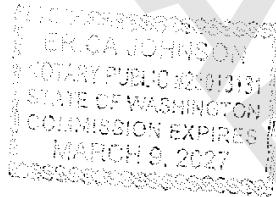 ERICA JOHNSON
NOTARY PUBLIC #21013131
STATE OF WASHINGTON
COMMISSION EXPIRES
MARCH 9, 2027